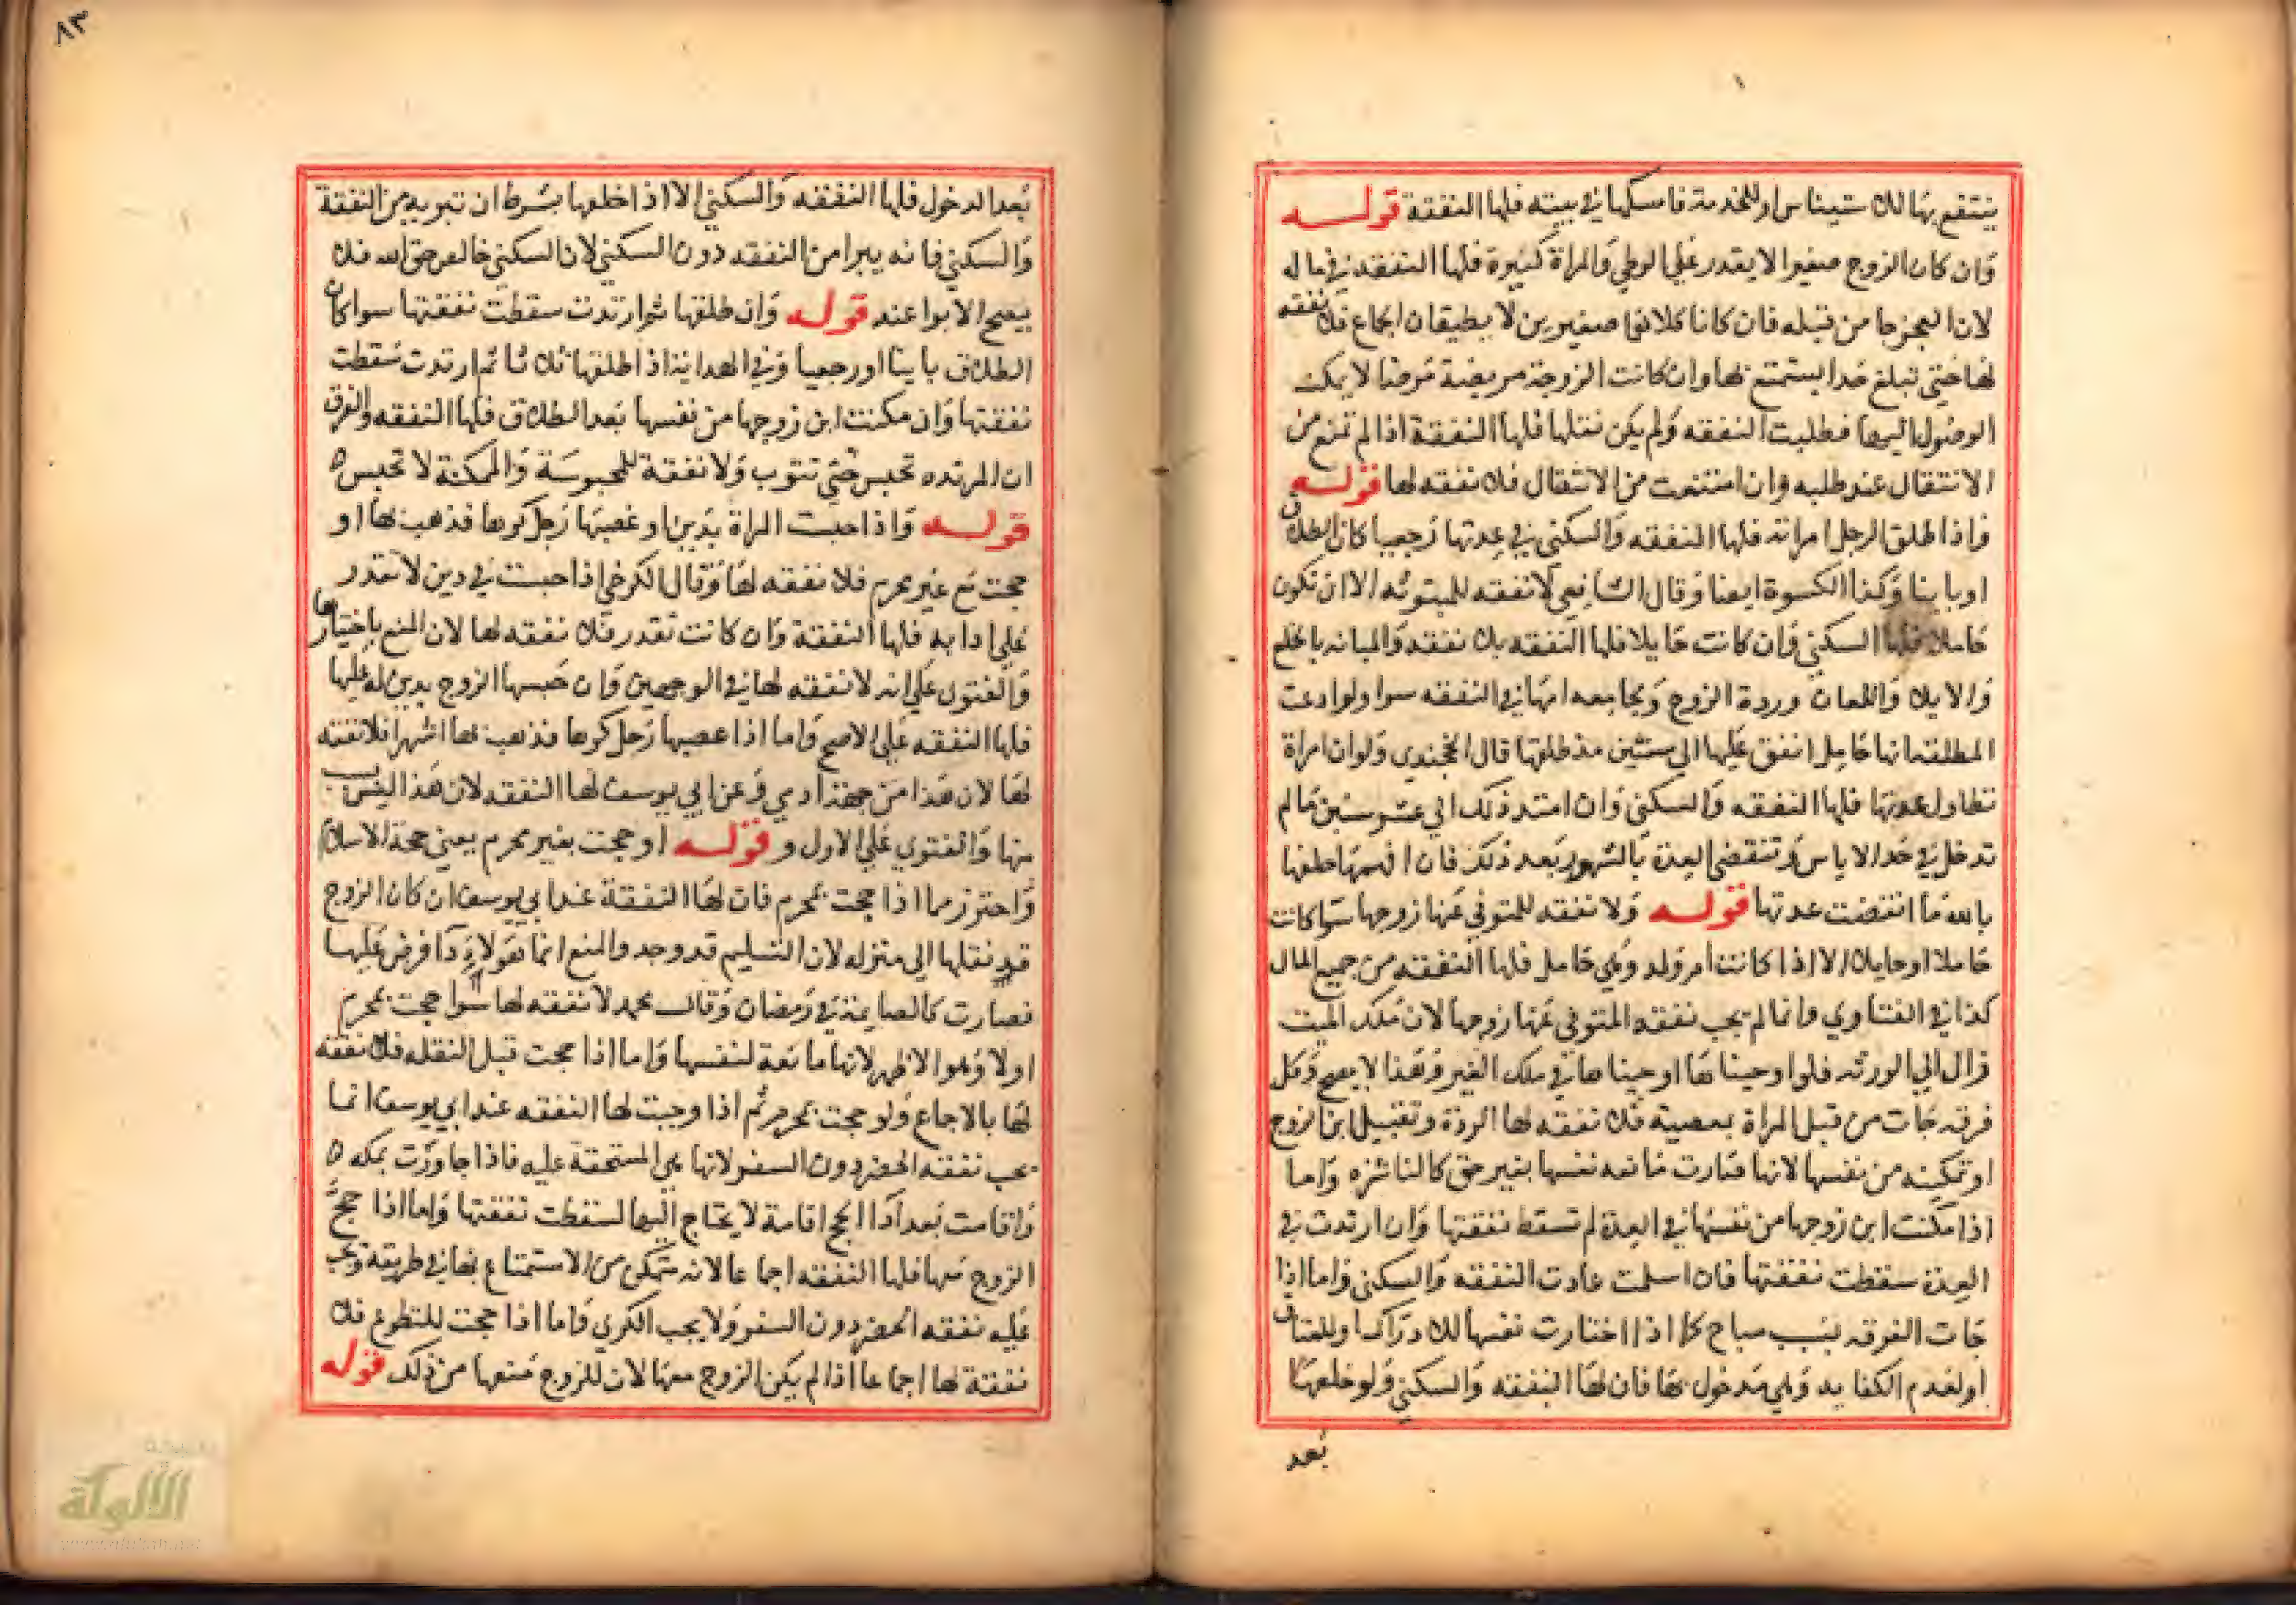 ينتفع بها للاستيناس او للخدمة فامسكها في بيته فلها النفقة قوله
وان كان الزوج صغيرا لا يقدر على الوطي والمراة كبيرة فلها النفقة في ماله
لان العجز جا من قبله فان كانا كلاهما صغيرين لا يطيقان الجماع فلا نفقه
لها حتى تبلغ حدا يستمتع بها وان كانت الزوجة مريضة مرضا لا يمكن
الوصول اليها فطلبت النفقه ولم يكن نقلها فلها النفقة اذا لم تمنع من
الانتقال عند طلبه وان امتنعت من الانتقال فلا نفقه لها قوله
واذا طلق الرجل امراته فلها النفقه والسكنى في عدتها رجعيا كان الطلاق
او باينا وكذا الكسوة ايضا وقال الشافعي لا نفقه للمبتوته الا ان تكون
حاملا فلها السكنى وان كانت حايلا فلها النفقه بلا نفقه والمبانه بالخلع
والايلا واللعان وردة الزوج ويجامعه امها في النفقه سوا ولو ادعت
المطلقه انها حامل انفق عليها الى سنتين مذ طلقها قال الخجندي ولو ان امراة
تطاول عدتها فلها النفقه والسكنى وان امتد ذلك الى عشر سنين مالم
تدخل في حد الاياس وتنقضي العدة بالشهور بعد ذلك فان اتهمها حلفها
بالله ما انقضت عدتها قوله ولا نفقه للمتوفي عنها زوجها سوا كانت
حاملا او حايلا الا اذا كانت ام ولد وهي حامل فلها النفقه من جميع المال
كذا في الفتاوي وانما لم يجب نفقه المتوفي عنها زوجها لان ملك الميت
زال الي الورثه فلو اوجبنا لها اوجبناها في ملك الغير وهذا لا يصح وكل
فرقه جات من قبل المراة بمعصية فلا نفقه لها الردة وتقبيل ابن الزوج
او تمكينه من نفسها لانها صارت مانعه نفسها بغير حق كالناشزه واما
اذا مكنت ابن زوجها من نفسها في العدة لم تسقط نفقتها وان ارتدت في
العدة سقطت نفقتها فان اسلمت عادت النفقه والسكنى واما اذا
جات الفرقه بسبب مباح كما اذا اختارت نفسها للادراك او للعتاق
او لعدم الكفايه وهي مدخول بها فان لها النفقه والسكنى ولو خلعها
بعد
٨٣
بعد الدخول فلها النفقه والسكنى الا اذا خلعها بشرط ان تبريه من النفقة
والسكنى فانه يبرا من النفقه دون السكنى لان السكنى خالص حق الله فلا
يصح الابرا عنه قوله وان طلقها ثم ارتدت سقطت نفقتها سوا كان
الطلاق باينا او رجعيا وفي الهداية اذا طلقها ثلاثا ثم ارتدت سقطت
نفقتها وان مكنت ابن زوجها من نفسها بعد الطلاق فلها النفقه والفرق
ان المرتده تحبس حتى تتوب ولا نفقة للمحبوسة والممكنة لا تحبس ه
قوله واذا حبست المراة بدين او غصبها رجل كرها فذهب بها او
حجت مع غير محرم فلا نفقه لها وقال الكرخي اذا حبست في دين لا تقدر
على ادا به فلها النفقة وان كانت تقدر فلا نفقه لها لان المنع باختيارها
والفتوى على انه لا نفقه لها في الوجهين وان حبسها الزوج بدين له عليها
فلها النفقه على الاصح واما اذا غصبها رجل كرها فذهب بها اشهرا فلا نفقه
لها لان هذا من جهة ادمي وعن ابي يوسف لها النفقه لان هذا ليس بسبب
منها والفتوي على الاول و قوله او حجت بغير محرم يعني حجة الاسلام
واحترز مما اذا حجت بمحرم فان لها النفقة عند ابي يوسف ان كان الزوج
قد نقلها الى منزله لان التسليم قد وجد والمنع انما هو لاداء فرض عليها
فصارت كالصايمة في رمضان وقال محمد لا نفقه لها سوا حجت بمحرم
او لا وهو الاظهر لانها مانعة لنفسها واما اذا حجت قبل النقله فلا نفقه
لها بالاجماع ولو حجت بمحرم ثم اذا وجبت لها النفقه عند ابي يوسف انما
يجب نفقه الحضر دون السفر لانها هي المستحقة عليه فاذا جاوزت بمكه ه
واقامت بعد ادا الحج اقامة لا يحتاج اليها لسقطت نفقتها واما اذا حج
الزوج معها فلها النفقه اجماعا لانه متمكن من الاستمتاع بها في طريقه وتجب
عليه نفقه الحضر دون السفر ولا يجب الكري واما اذا حجت للتطوع فلا
نفقة لها اجماعا اذا لم يكن الزوج معها لان للزوج منعها من ذلك قوله
الألوكة